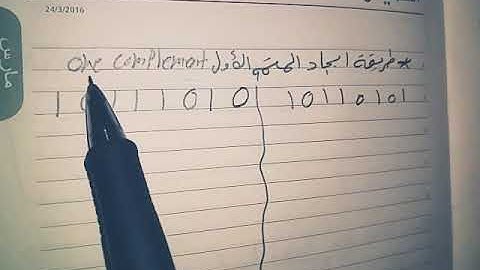 24/3/2016
* طريقة ايجاد المتمم الأول one complement
1 0 1 1 1 0 1 0 | 1 0 1 1 0 1 0 1
مارس